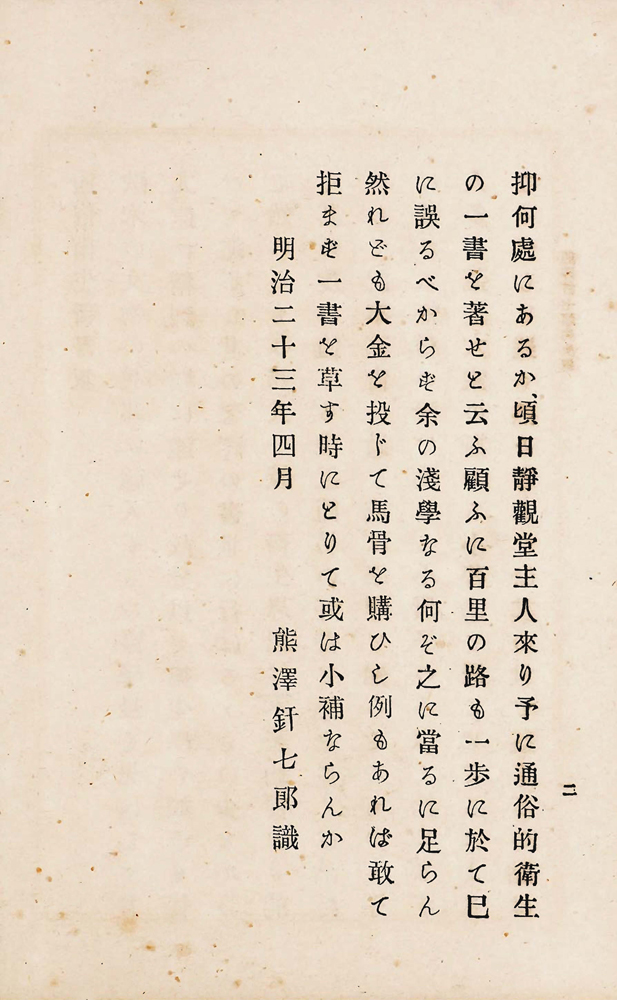 抑何處にあるか、頃日靜觀堂主人來り予に通俗的衛生
の一書を著せと云ふ顧ふに百里の路も一歩に於て已
に誤るべからず余の淺學なる何ぞ之に當るに足らん
然れども大金を投じて馬骨を購ひし例もあれば敢て
拒まず一書を草す時にとりて或は小補ならんか
明治二十三年四月
熊澤釬七郎識
二